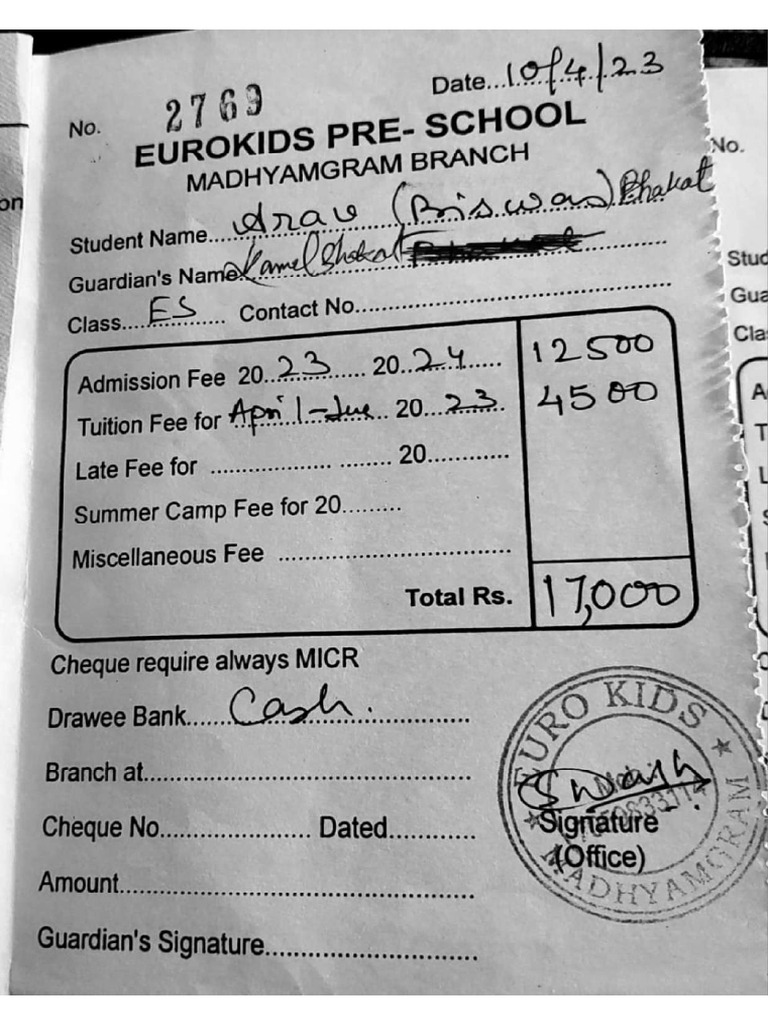 No. 2769 Date...10/4/23
EUROKIDS PRE- SCHOOL
MADHYAMGRAM BRANCH
Student Name...Arav (Biswas) Bhakat
Guardian's Name Kamel Bhakat
Class....ES............ Contact No.....................................................
Admission Fee 20..23......... 20..24...... 12500
Tuition Fee for April-Jue.. 20...23.. 4500
Late Fee for .................. ........ 20............
Summer Camp Fee for 20.........
Miscellaneous Fee ...................................
Total Rs. 17,000
Cheque require always MICR
Drawee Bank......Cash.................
Branch at.................................................
Cheque No...................... Dated............
Amount.....................................................
Guardian's Signature................................
EURO KIDS
MADHYAMGRAM
Signature
(Office)
No.